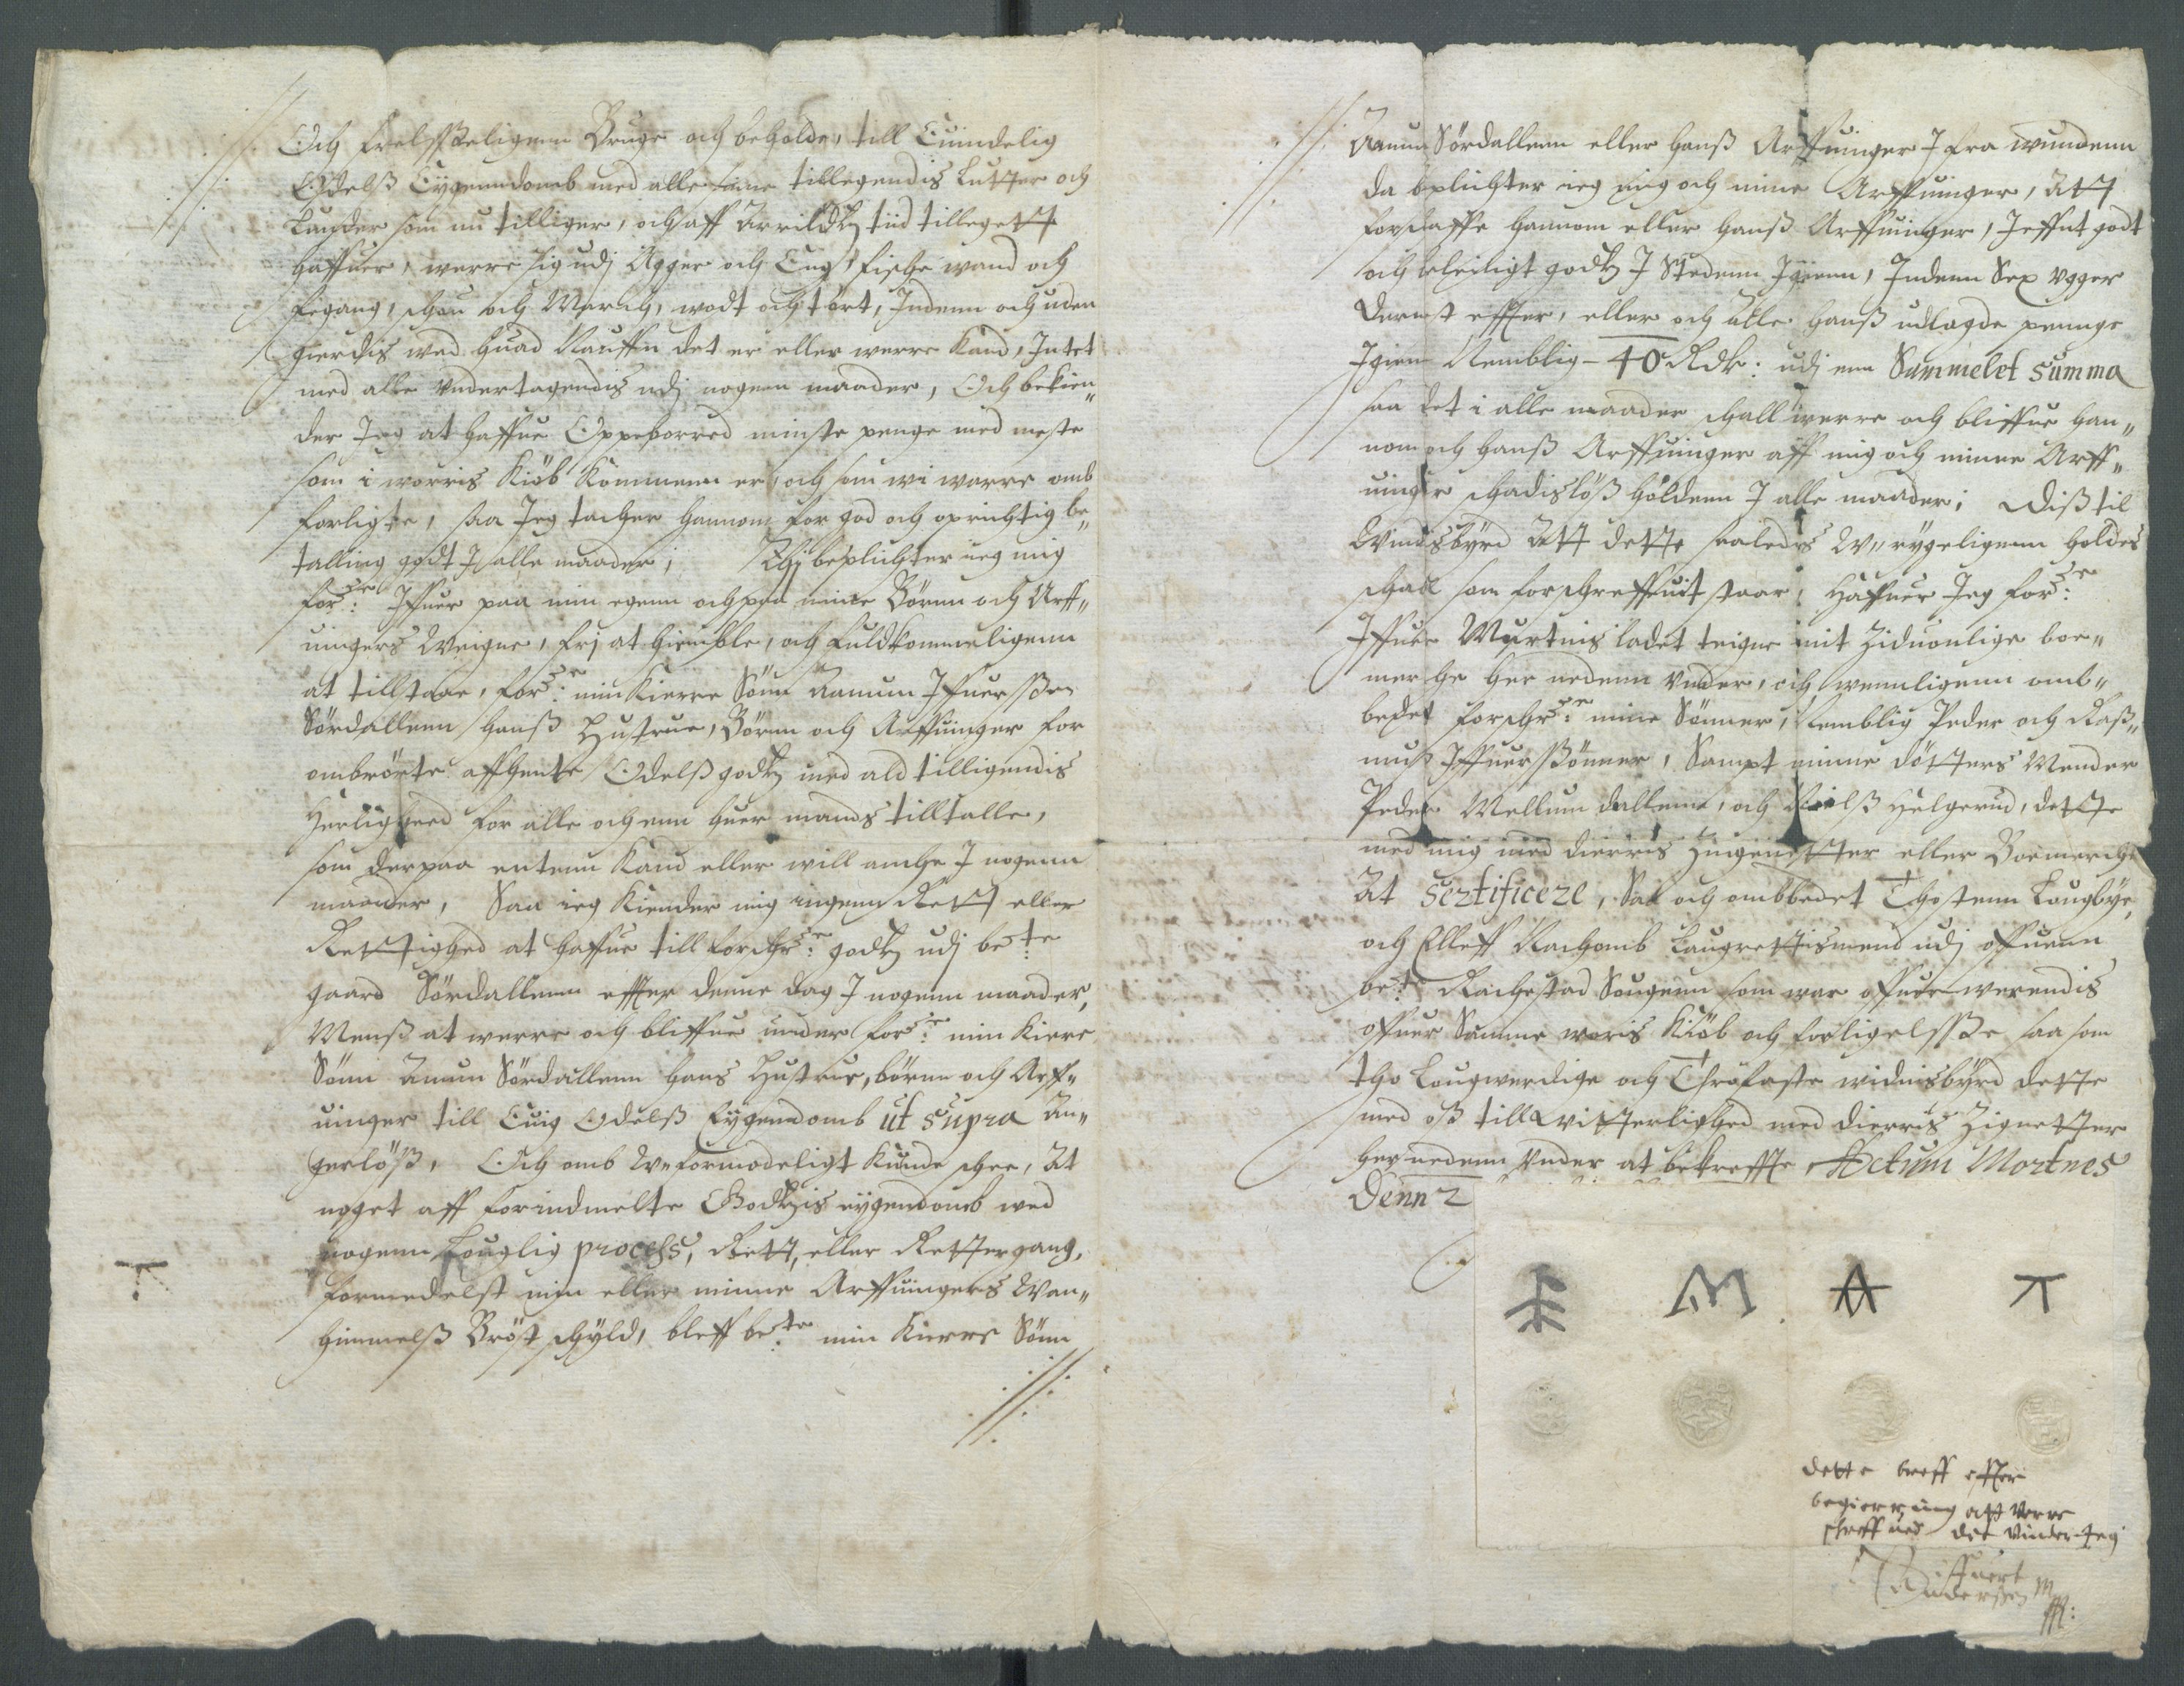 Och frelsseligenn Bruge och beholde, till Euindelig
Odelss Eygenndomb med alle sine tillegendis Lutter och
Lunder som nu tilliger, och aff Arrildtz tiid tillegett
haffuer, werre sig udj Agger och Eng, fische wand och
fegang, schou och Marck, wodt och tørt, Indenn och uden
gierdis wed huad Naffn det er eller werre kand, Intet
med alle undertagendis udj nogenn maader, Och bekien„
der Jeg at haffue Oppeborred minste penge med meste
som i worris Kiøb kommenn er, och som wi warre omb
forligte, saa Jeg tacker hannom for god och oprichtig be„
talling godt J alle maader; Thj beplichter ieg mig
forsre: Iffuer paa min egenn och paa mine Børnn och Arff„
uingers Weigne, frj at hiemble, och fuldkommeligenn
at tillstaae, forsre: min Kierre Sønn Aamun Iffuerssen
Sørdallenn hanss Hustrue, Børnn och Arffuinger for
ombrørte affhente Odelss godtz med ald tilligendis
Herligheed for alle och enn huer mands tilltalle,
som derpaa entenn kand eller will ancke J nogenn
maader, Saa ieg kiender mig ingenn Rett eller
Rettighed at haffue till forschrne: godtz udj bete:
gaard Sørdallenn effter denne dag J nogenn maader,
Menss at werre och bliffue under forsne: min Kiere
Sønn Amun Sørdallenn hans Hustrue, børnn och Arff„
uinger till Euig Odelss Eygenndomb ut supra An„
gerløss, Och omb W„formodeligt kunde schee, At
noget aff forindmelte Godtzis eygendomb wed
nogenn Louglig process, Rett, eller Rettergang,
formedelst min eller minne Arffuingers Wan„
himmelss Brøst schyld, bleff bete: min Kierre Sønn
Aamun Sørdallenn eller hanss Arffuinger J fra wundenn
da beplichter ieg mig och mine Arffuinger, Att
forschaffe hannom eller hanss Arffuinger, Jeffnt godt
och beleiligt godtz J Stedenn Igienn, Indenn Sex Ugger
dernest effter, eller och alle hanss udlagde pennge
Igien Nemblig – 40 Rdr: udj enn Summelet summa
saa det i alle maader schall werre och bliffue han„
nom och hanss Arffuinger aff mig och minne Arff„
uinger schadisløss holdenn J alle maader; Diss til
Windisbyrd Att dette saaledis W„rygeligenn holdes
schall som forschreffuit staar, Haffuer Jeg forsne:
Iffuer Murtnis ladet teigne mit Ziduonlige boe„
mercke her nedenn under, och wennligenn omb„
bedet forschrne: mine Sønner, Nemblig Peder och Rass„
muss Iffuerssønner, Sampt minne døtters Mender
Peder Mellum dallenn, och Nielss Helgerud, dette
med mig med dierris Zingenetter eller Boemercke
At sertificere, Saa och ombbedet Thostenn Lougbye,
och Elleff Rachomb Laugrettismend udj offuenn
bete: Rackestad Sougenn som war offuerwerendis
offuer Samme woris Kiøb och forligelsse saa som
tho Lougwerdige och Throfaste widnisbyrd dette
med oss till Witterlighed med dierris Zignetter
her nedenn under at bekreffte Actum Mortnes
Denn 2
dette breff effter
begierring att Verre
schreffued det Vinder Jeg
iffuert
Anderssen